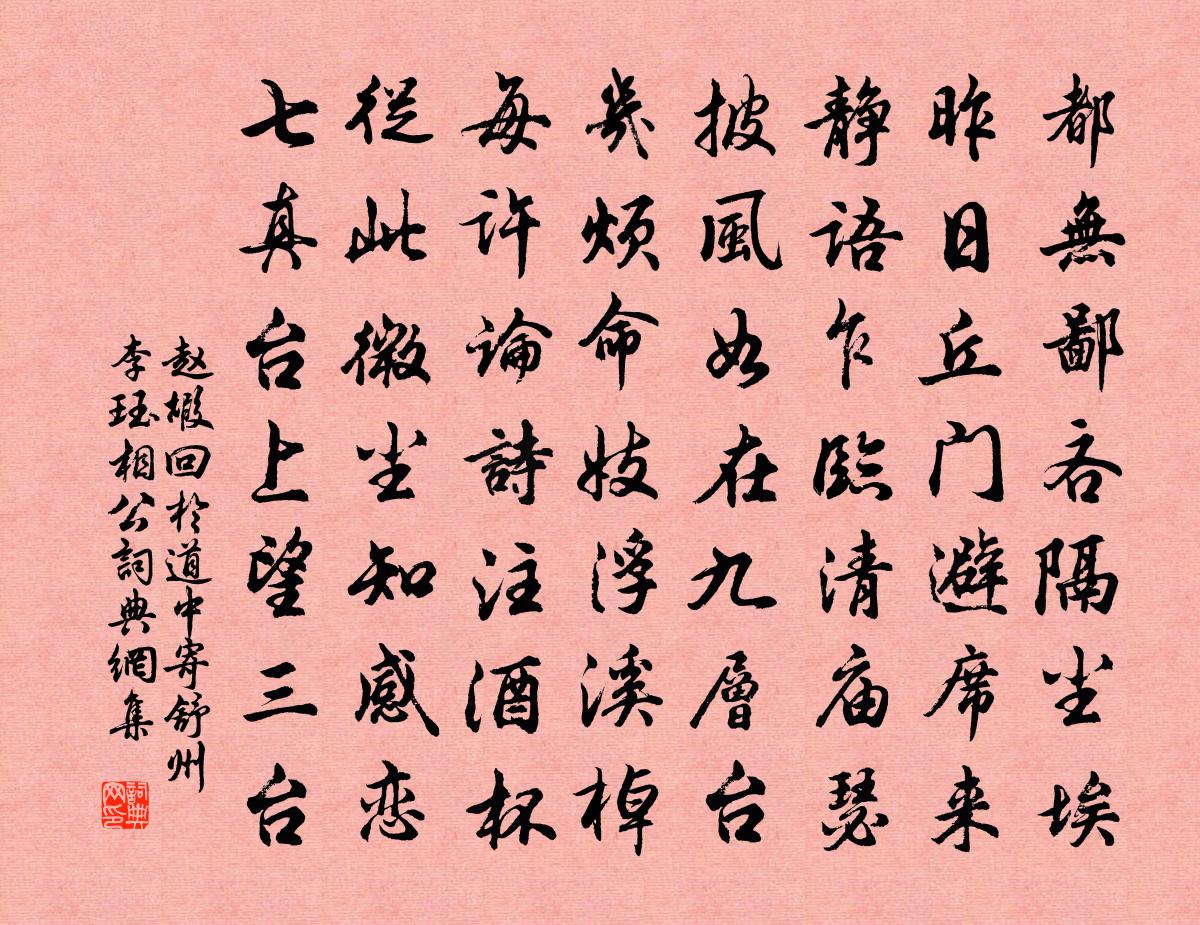 都無鄙吝隔尘埃
昨日丘门避席来
静語乍臨清庙瑟
披風如在九層台
幾煩命妓浮溪棹
每許論詩注酒杯
從此微尘知感恋
七真台上望三台
赵嘏回於道中寄舒州
李珏相公詞典網集
詞典网印